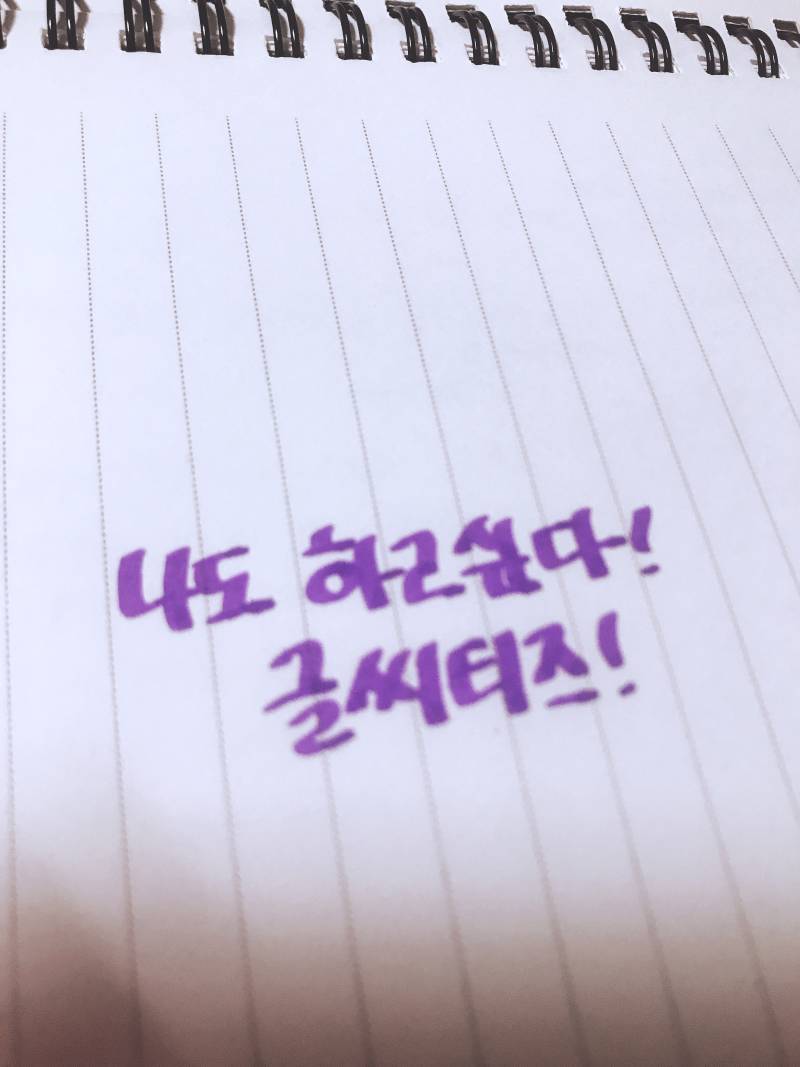 나도 하고싶다!
글씨티즈!